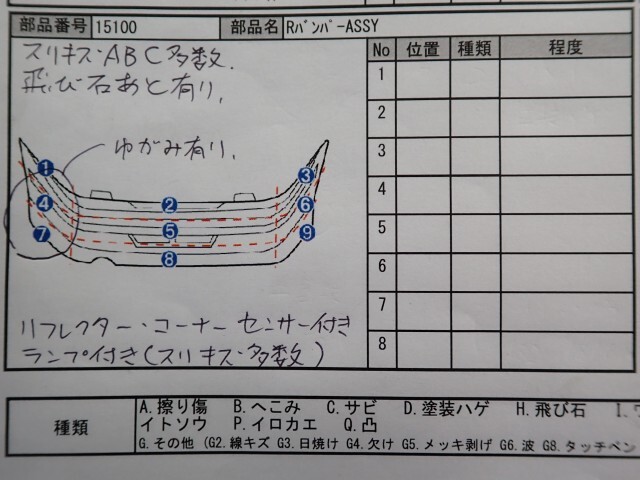 部品番号 15100 部品名 Rバンパー-ASSY
スリキズ・ABC多数.
飛び石あと有り,
ゆがみ有り,
1 2 3
4 5 6
7 8 9
リフレクター・コーナーセンサー付き
ランプ付き(スリキズ・多数)
No 位置 種類 程度
1
2
3
4
5
6
7
8
種類
A.擦り傷 B.へこみ C.サビ D.塗装ハゲ H.飛び石 I.
イトソウ P.イロカエ Q.凸
G.その他 (G2.線キズ G3.日焼け G4.欠け G5.メッキ剥げ G6.波 G8.タッチペン